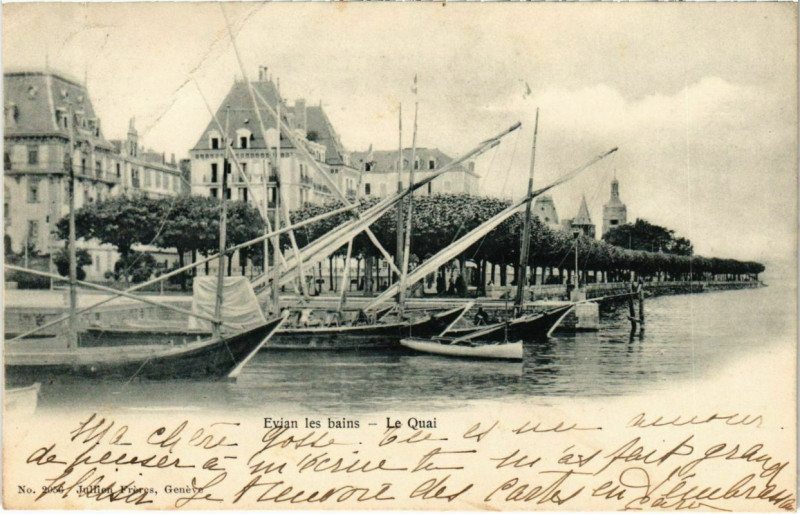 Evian les bains – Le Quai
Ma chère Gosse. Tu es un amour
de penser à m'écrire tu m'as fait grand
plaisir Je t'enverrai des cartes en t'embrassant
No. 2056 Jullien Frères, Genève